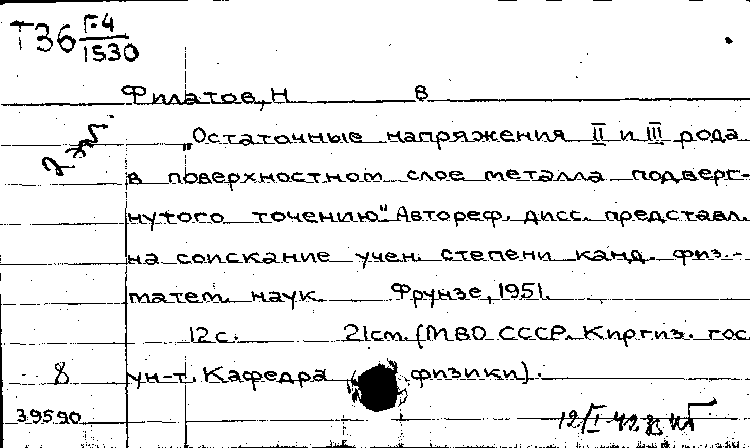 Т36 Г-4
1530
Филатов, Н В
2 эк.
„Остаточные напряжения II и III рода
в поверхностном слое металла подверг-
нутого точению". Автореф. дисс. представл.
на соискание учен. степени канд. физ.-
матем. наук. Фрунзе, 1951.
12с. 21см. (МВО СССР. Киргиз. гос
8 ун-т. Кафедра физики).
39590